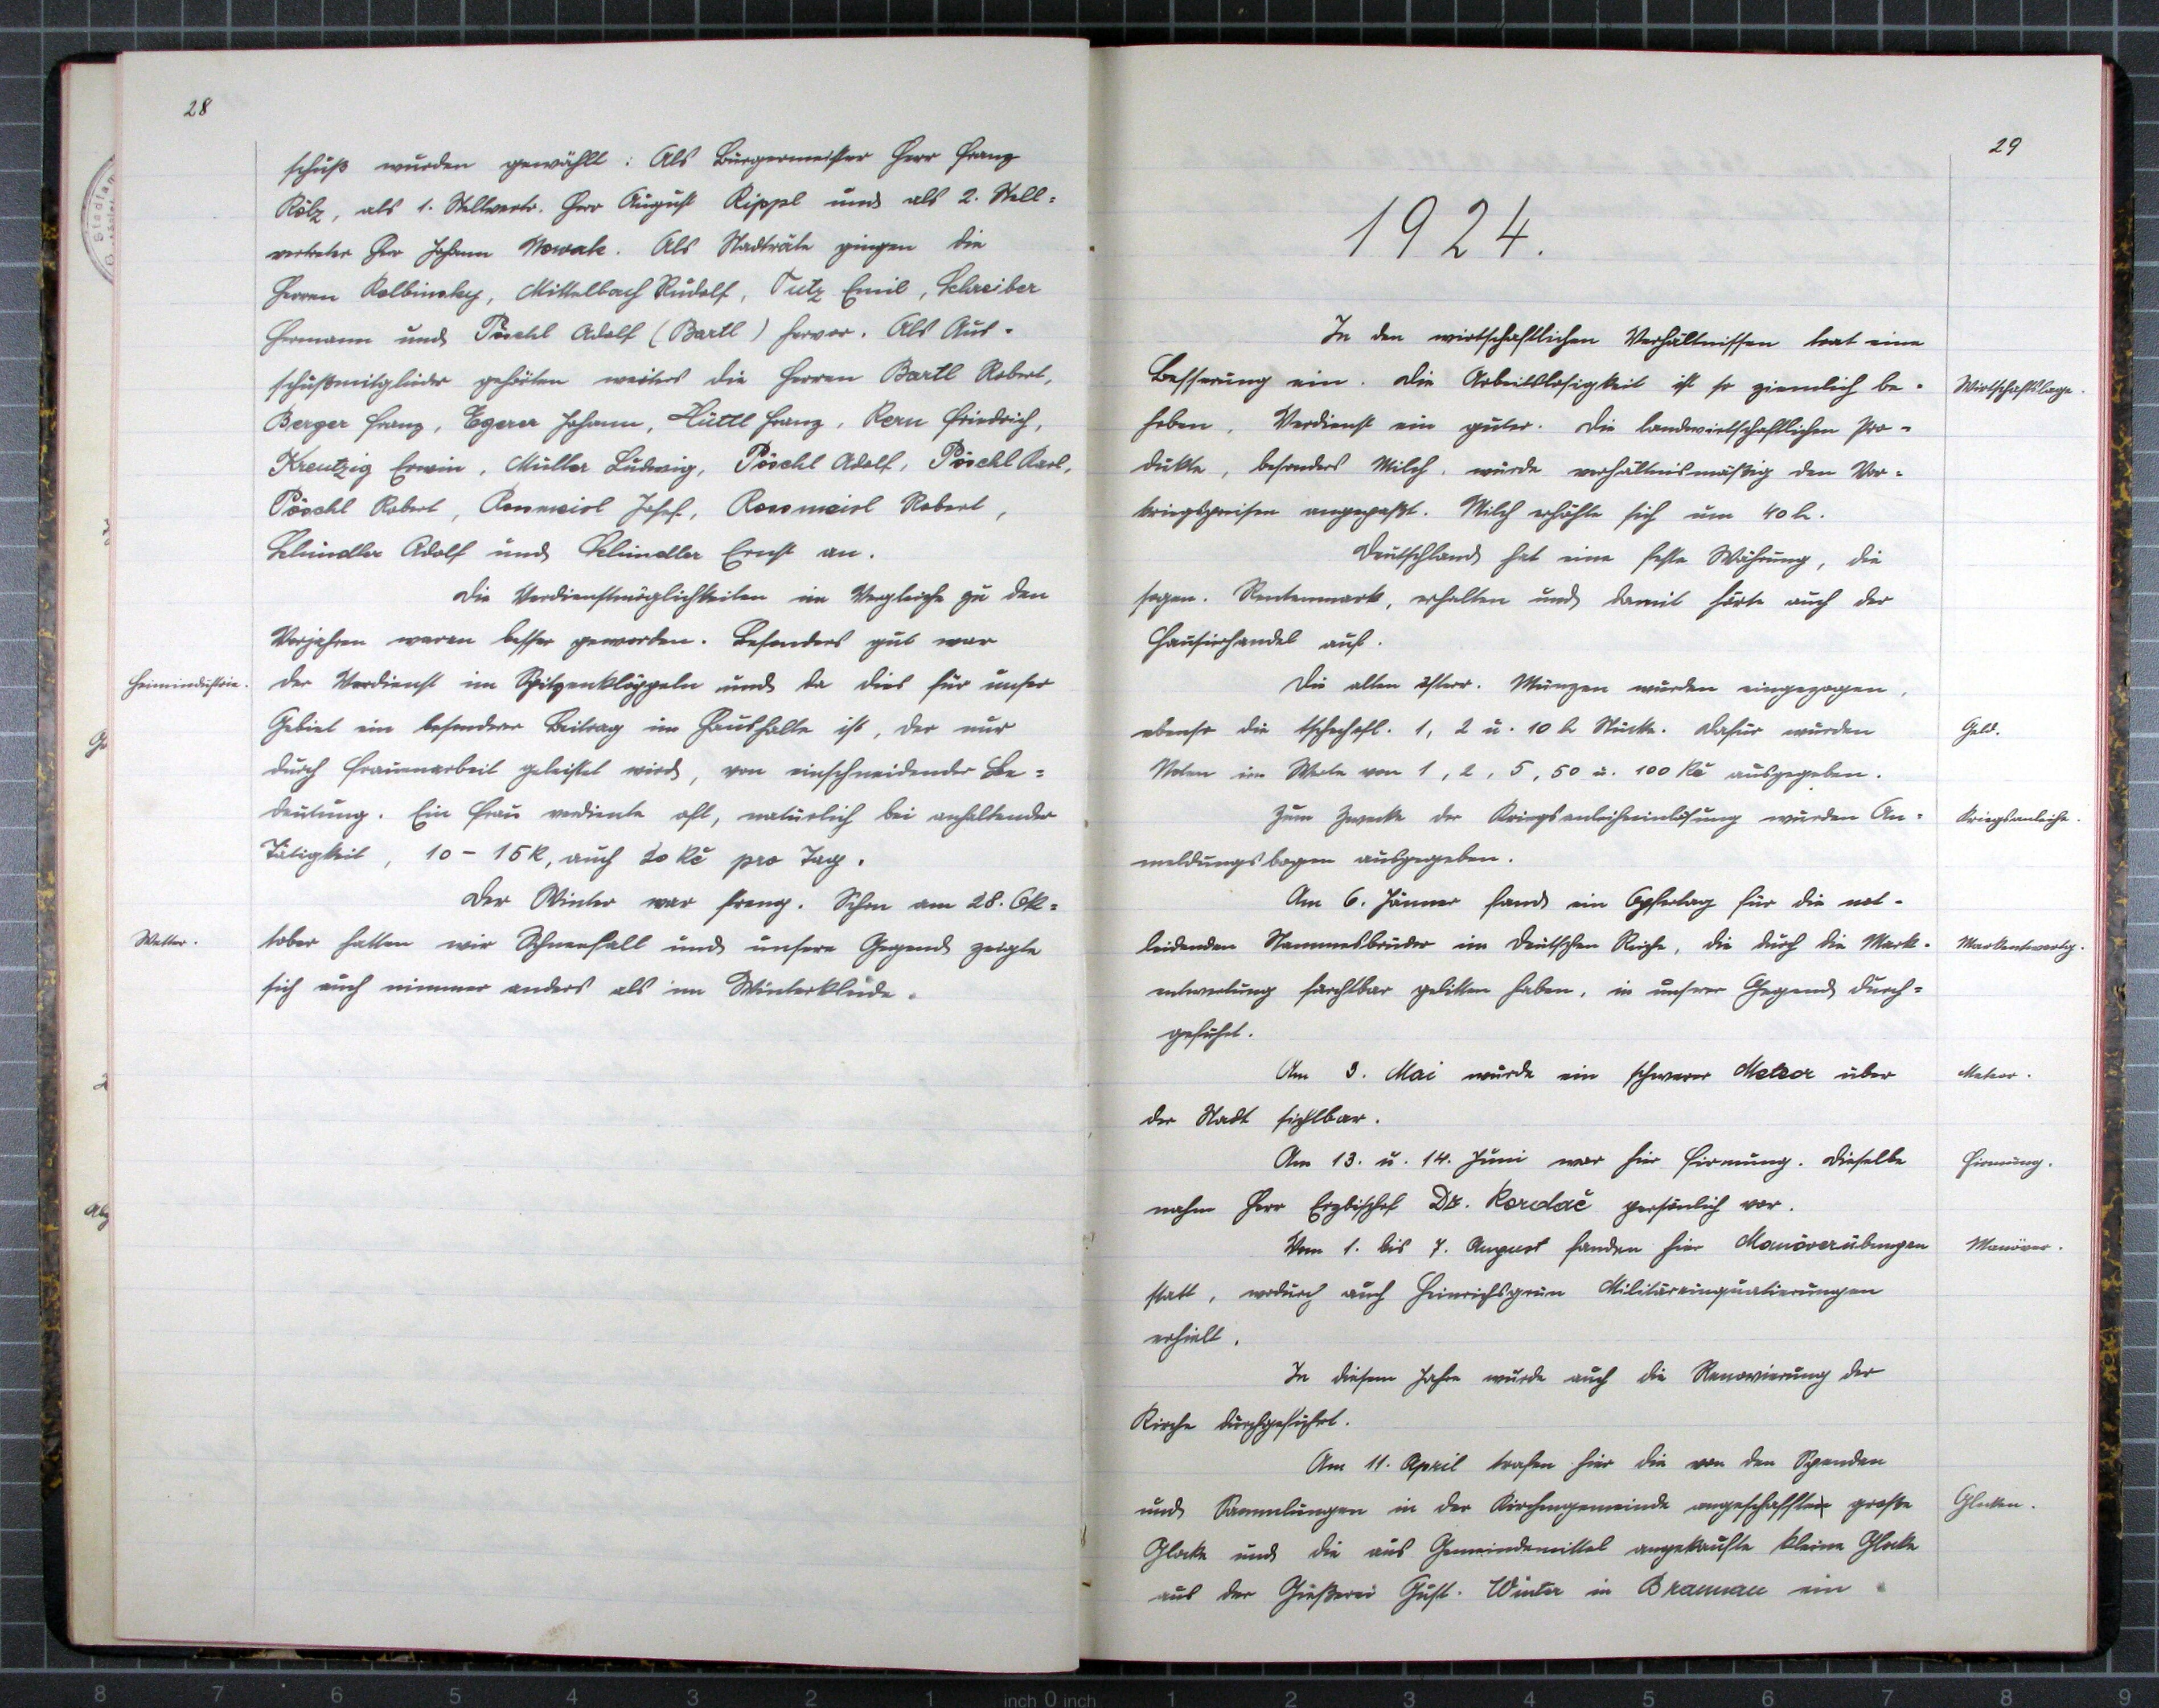 28
schuß wurden gewählt: Als Bürgermeister Herr Franz
Rölz, als 1. Stellvertr. Herr August Rippl und als 2. Stell=
vertreter Herr Johann Nowak. Als Stadträte gingen die
Herren Kolbinsky, Mittelbach Rudolf, Tutz Emil, Schreiber
Hermann und Pöschl Adolf (Bartl) hervor. Als Aus-
schußmitglieder gehörten weiters die Herren Bartl Robert,
Berger Franz, Egerer Johann, Hüttl Franz, Kern Friedrich,
Kreutzig Erwin, Müller Ludwig, Pöschl Adolf, Pöschl Karl,
Pöschl Robert, Rossmeisl Josef, Rossmeisl Robert,
Schindler Adolf und Schindler Ernst an.
Die Verdienstmöglichkeiten im Vergleiche zu den
Vorjahren waren besser geworden. Besonders gut war
Heimindustrie.
der Verdienst im Spitzenklöppeln und da dies für unser
Gebiet ein besonderer Beitrag im Haushalte ist, der nur
durch Frauenarbeit geleistet wird, von einschneidender Be=
deutung. Ein Frau verdiente oft, natürlich bei anhaltender
Tätigkeit, 10-15 K, auch 20 Kč pro Tag.
Der Winter war streng. Schon am 28. Ok=
Wetter.
tober hatten wir Schneefall und unsere Gegend zeigte
sich auch nimmer anders als im Winterkleide.
29
1924.
In den wirtschaftlichen Verhältnissen trat eine
Besserung ein. Die Arbeitslosigkeit ist so ziemlich be-
Wirtschaftslage.
hoben, Verdienst ein guter. Die landwirtschaftlichen Pro-
dukte, besonders Milch, wurde verhältnismäßig den Vor-
kriegspreisen angepaßt. Milch erhöhte sich um 40 h.
Deutschland hat eine feste Währung, die
sogen. Rentenmark, erhalten und damit hörte auch der
Hausierhandel auf.
Die alten österr. Münzen wurden eingezogen,
ebenso die tschechosl. 1, 2 u. 10 h Stücke. Dafür wurden
Geld.
Noten im Werte von 1, 2, 5, 50 u. 100 Kč ausgegeben.
Zum Zwecke der Kriegsanleiheeinlösung wurden An=
Kriegsanleihe.
meldungsbogen ausgegeben.
Am 6. Jänner fand ein Opfertag für die not-
leidenden Stammesbrüder im deutschen Reiche, die durch die Mark-
Markentwertg.
entwertung furchtbar gelitten haben, in unserer Gegend durch=
geführt.
Am 3. Mai wurde ein schwerer Meteor über
Meteor.
der Stadt sichtbar.
Am 13. u. 14. Juni war hier Firmung. Dieselbe
Firmung.
nahm Herr Erzbischof Dr. Kordač persönlich vor.
Vom 1. bis 7. August fanden hier Manöverübungen
Manöver.
statt, wodurch auch Heinrichsgrün Militäreinquatierungen
erhielt.
In diesem Jahre wurde auch die Renovierung der
Kirche durchgeführt.
Am 11. April trafen hier die von den Spenden
und Sammlungen in der Kirchengemeinde angeschaffte große
Glocken.
Glocke und die aus Gemeindemittel angekaufte kleine Glocke
aus der Gießerei Gust. Winter in Braunau ein
8 7 6 5 4 3 2 1 inch 0 inch 1 2 3 4 5 6 7 8 9